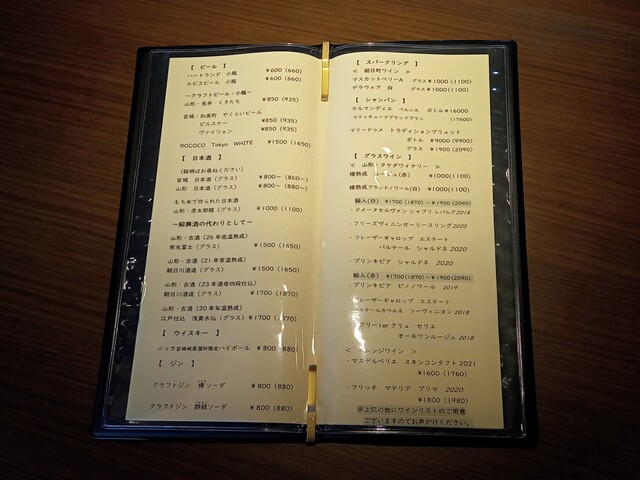 【 ビール 】
ハートランド 小瓶 ¥600 (660)
エビスビール 小瓶 ¥600 (660)
～クラフトビール・小瓶～
山形・長井 くきたち ¥850 (935)
宮城・加美町 やくらいビール
ピルスナー ¥850 (935)
ヴァイツェン ¥850 (935)
ROCOCO Tokyo WHITE ¥1500 (1650)
【 日本酒 】
（銘柄はお尋ねください）
宮城 日本酒（グラス） ¥800～ (880～)
山形 日本酒（グラス） ¥800～ (880～)
もち米で作られた日本酒
山形・彦太郎糯（グラス） ¥1000 (1100)
～紹興酒の代わりとして～
山形・古酒（26年低温熟成）
栄光冨士（グラス） ¥1500 (1650)
山形・古酒（21年常温熟成）
朝日川酒造（グラス） ¥1500 (1650)
山形・古酒（23年酒母四段仕込）
朝日川酒造（グラス） ¥1700 (1870)
山形・古酒（20年常温熟成）
江戸仕込 浅黄水仙（グラス）¥1700 (1870)
【 ウイスキー 】
ニッカ宮城峡蒸溜所限定ハイボール ¥800 (880)
【 ジン 】
クラフトジン 欅ソーダ ¥800 (880)
クラフトジン 群緑ソーダ ¥800 (880)
【 スパークリング 】
≪ 朝日町ワイン ≫
マスカットベリーA グラス¥1000(1100)
デラウェア 白 グラス¥1000(1100)
【 シャンパン 】
ラルマンディエ ベルニエ ボトル¥16000
ラティチュードブランドブラン (17600)
マリードラメ トラディションブリュット
ボトル ¥9000 (9900)
グラス ¥1900 (2090)
【 グラスワイン 】
≪ 山形・タケダワイナリー ≫
樽熟成 ルージュ(赤) ¥1000(1100)
樽熟成ブランドノワール(白) ¥1000(1100)
輸入(白) ¥1700 (1870) ～¥1900 (2090)
・ドメーヌセルヴァン シャブリ レパルグ2018
・フリーズヴィニンガーリースリング2020
・フレーザーギャロップ エステート
パルテール シャルドネ 2020
・プリンキピア シャルドネ 2020
輸入(赤) ¥1700(1870)～ ¥1900(2090)
・プリンキピア ピノノワール 2019
・フレーザーギャロップ エステート
パルテールカベルネ ソーヴィニヨン 2018
1erクリュ セリエ
オーモワンルージュ 2018
＜ オレンジワイン ＞
・マスデルペリエ スキンコンタクト 2021
¥1600 (1760)
・フリッチ マテリア プリマ 2020
¥1800 (1980)
※上記の他にワインリストのご用意
ございますのでお声がけください。